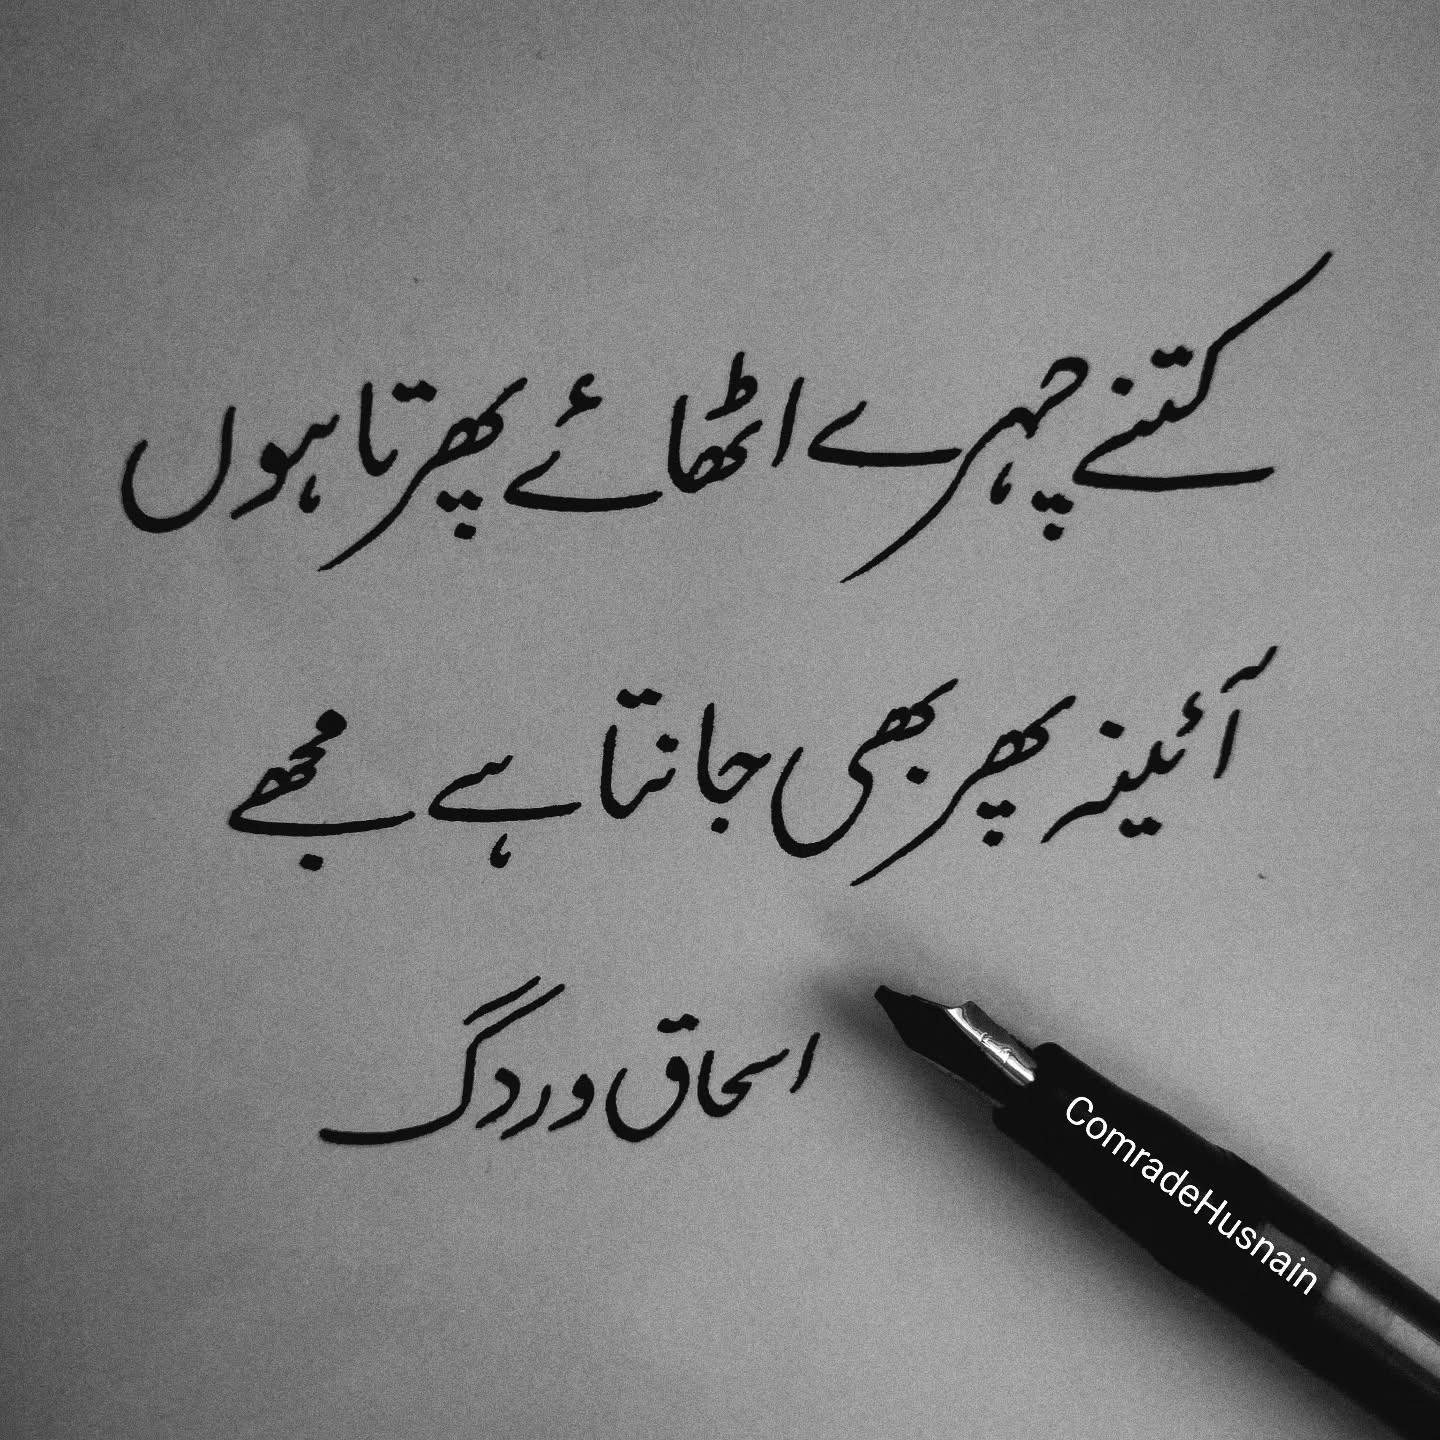 کتنے چہرے اٹھائے پھرتا ہوں
آئینہ پھر بھی جانتا ہے مجھے
اسحاق وردگ
ComradeHusnain